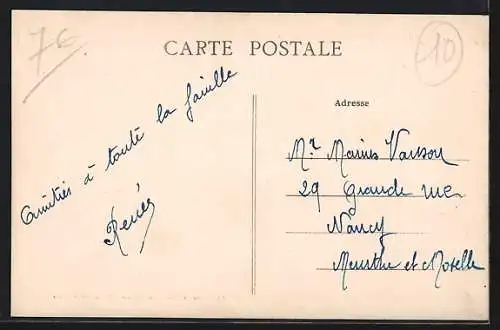 7€
10
CARTE POSTALE
Amitiés à toute la famille
Renée
Adresse
Mr Marius Vanson
29 Grande rue
Nancy
Meurthe et Moselle